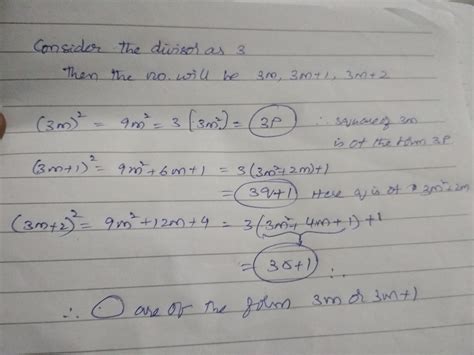 Consider the divisor as 3
Then the no. will be 3m, 3m+1, 3m+2
(3m)² = 9m² = 3(3m²) = 3P ∴ square of 3m
is of the form 3P.
(3m+1)² = 9m²+6m+1 = 3(3m²+2m)+1
= 3q+1 Here q is of 3m²+2m
(3m+2)² = 9m²+12m+4 = 3(3m²+4m+1)+1
= 3s+1 ∴
∴ are of the form 3m or 3m+1